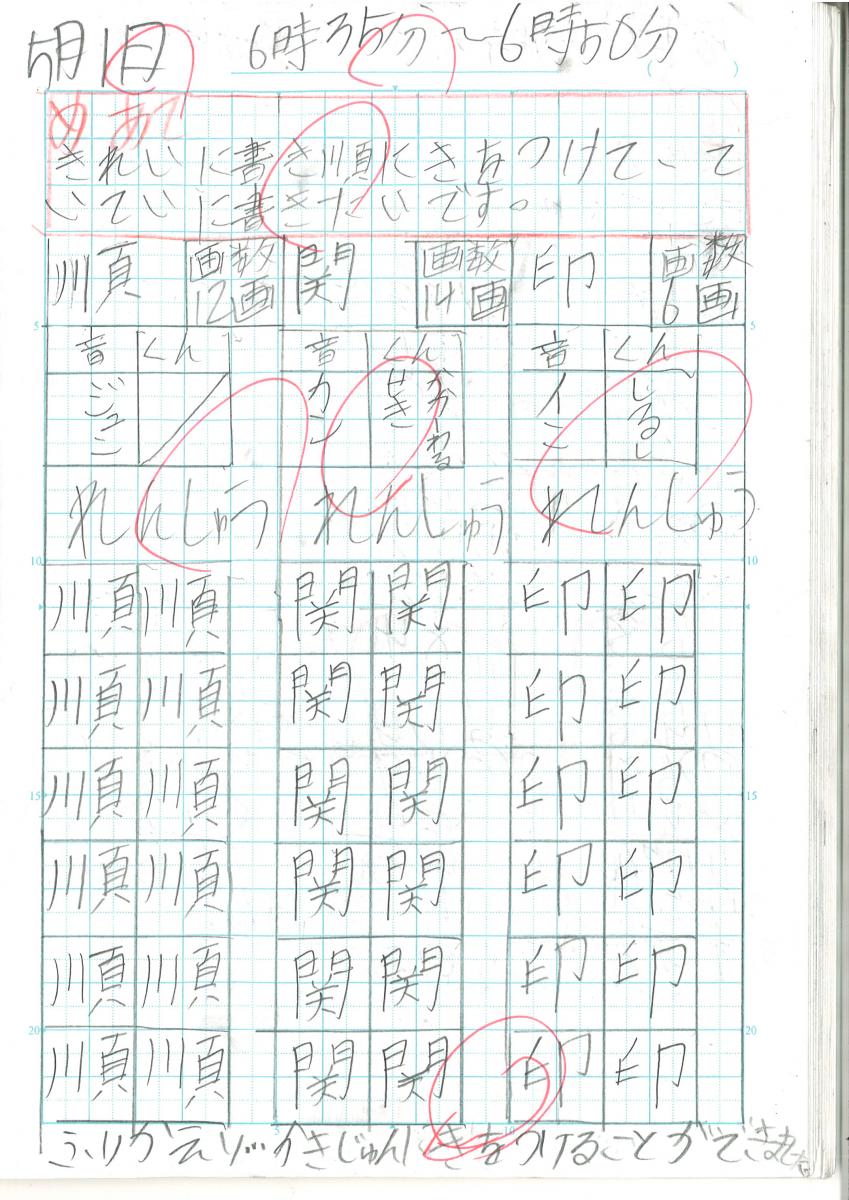 5月1日 6時35分〜6時50分
めあて
きれいに書き順にきをつけて てい
ていに書きたいです。
順 画数12画 関 画数14画 印 画数6画
音 くん 音 くん 音 くん
ジュン カン せき かかわる イン しるし
れんしゅう れんしゅう れんしゅう
順 順 関 関 印 印
順 順 関 関 印 印
順 順 関 関 印 印
順 順 関 関 印 印
順 順 関 関 印 印
順 順 関 関 印 印
5 5
10 10
15 15
20 20
ふりかえり…かきじゅんにきをつけることができました